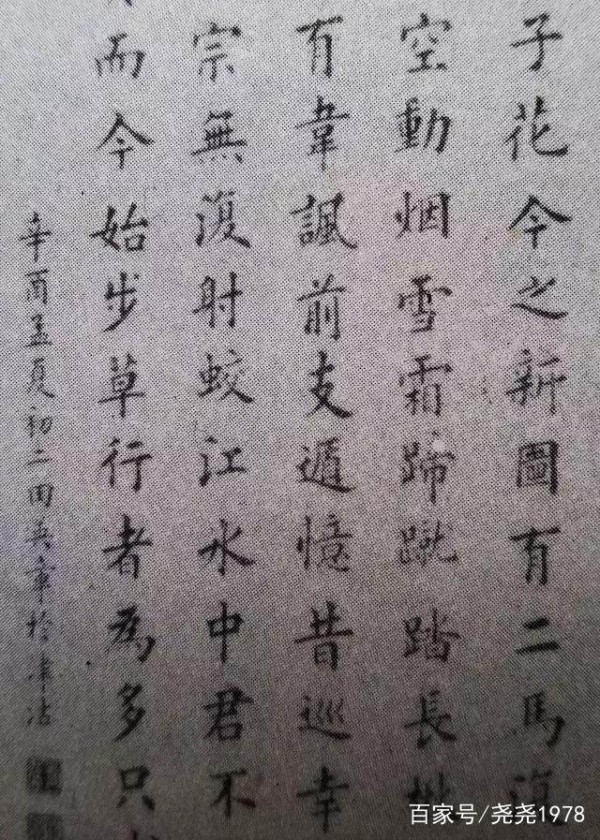 子花今之新圖有二馬復
空動烟雪霜蹄蹴踏長楸
有韋諷前支遁憶昔巡幸
宗無復射蛟江水中君不
而今始步草行者為多只
辛酉孟夏初二田英章於津沽
百家号/尧尧1978